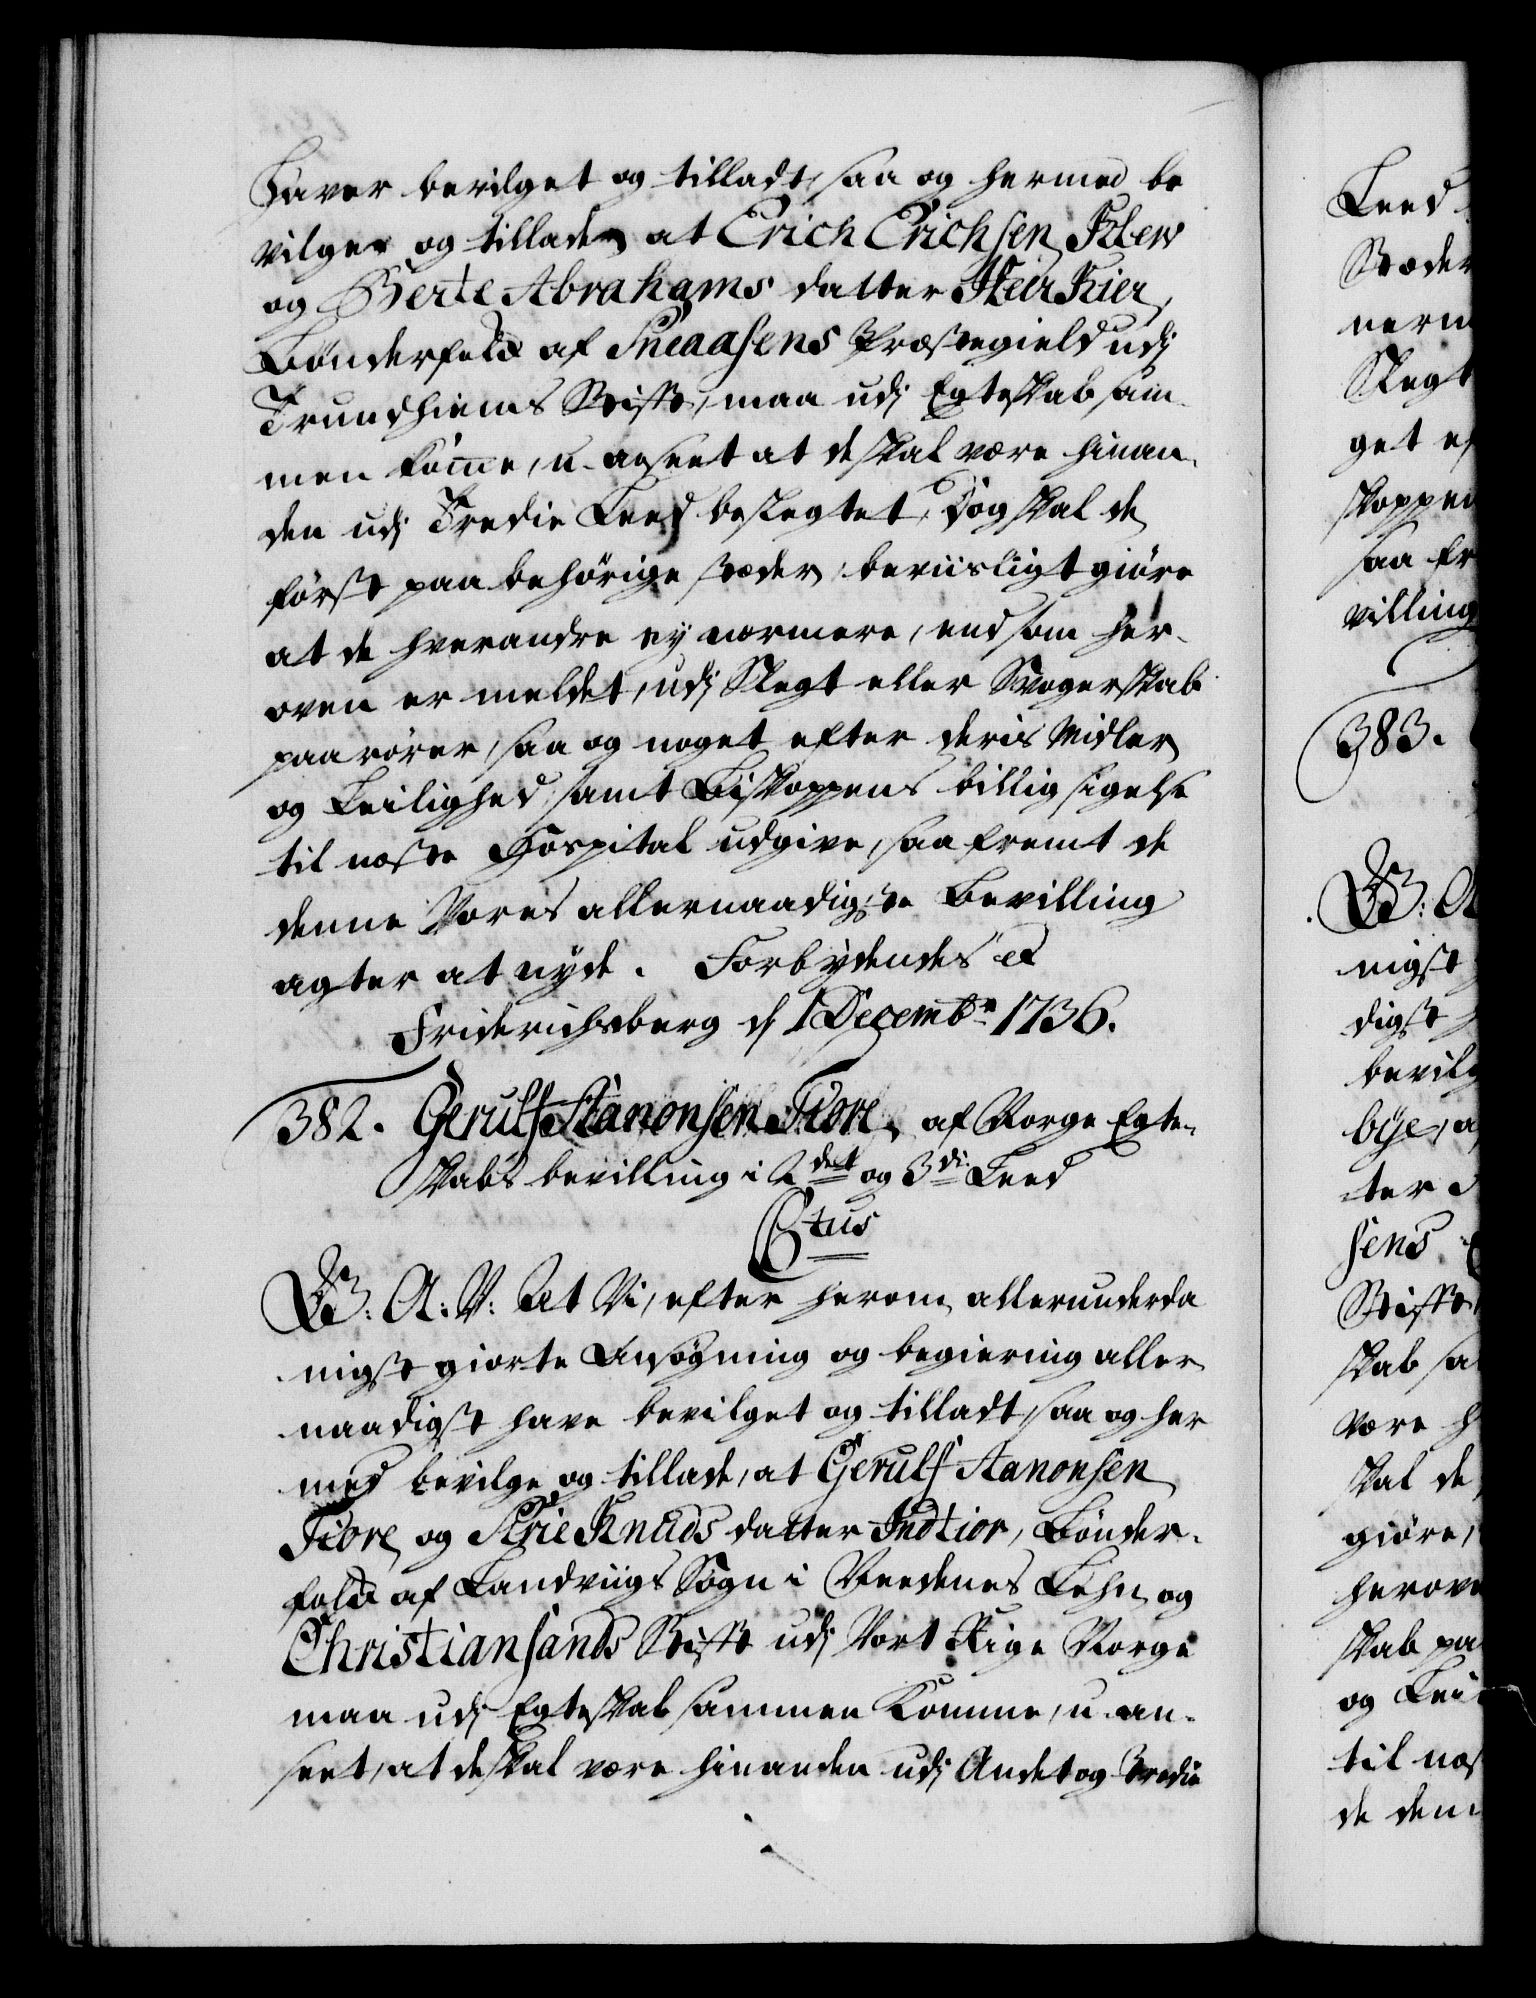 haver bevilget og tilladt, saa og hermed be
vilger og tillader at Erich Erichsen Kler
og Berte Abrahams datter Heir Kier,
Bønderfolk af Sneaasens Præstegield udj
Trundhiems Stifft, maa udj Egteskab sam-
men komme, u-anseet at de skal være hinan-
den udj Tredie Leed beslegtet, Dog skal de
først paa behörige stæder beviisligt giöre
at de hverandre ey nærmere, end som her-
oven er meldet, udj Slegt eller Svogerskab
paarörer, saa og noget efter deris Midler
og Leilighed, samt Biskoppens billig sigelse
til næste Hospital udgive, saa fremt de
denne Vores allernaadigste Bevilling
agter at nyde. Forbydendes et
Friderichsberg d 1 Decembr 1736.
382. Gerulf Aanonsen Fiore, af Norge Egte-
skabs bevilling i 2det og 3di Leed
Gtus
W: A: V: At Vi, efter herom allerunderda
nigst giorte Ansögning og begiering aller
naadigst have bevilget og tilladt, saa og her
med bevilge og tillade, at Gerulf Aanonsen
Fiore og Sirie Knuds datter Indtior, Bönder-
folk af Landviigs Sogn i Needenes Lehn og
Christiansands Stifft udj Vort Rige Norge
maa udj Egteskab sammen Komme, u-an-
seet, at de skal være hinanden udj Andet og Tredie
Leed
Stæder
nerm
Slegt
get ef
skoppen
saa fr
villing
383.
W: A
nigst
digst
bevilg
bye, a
ter
sens
Stifft
skab sa
være h
skal de
giöre,
herove
skab pa
og Lei
til næs
de den